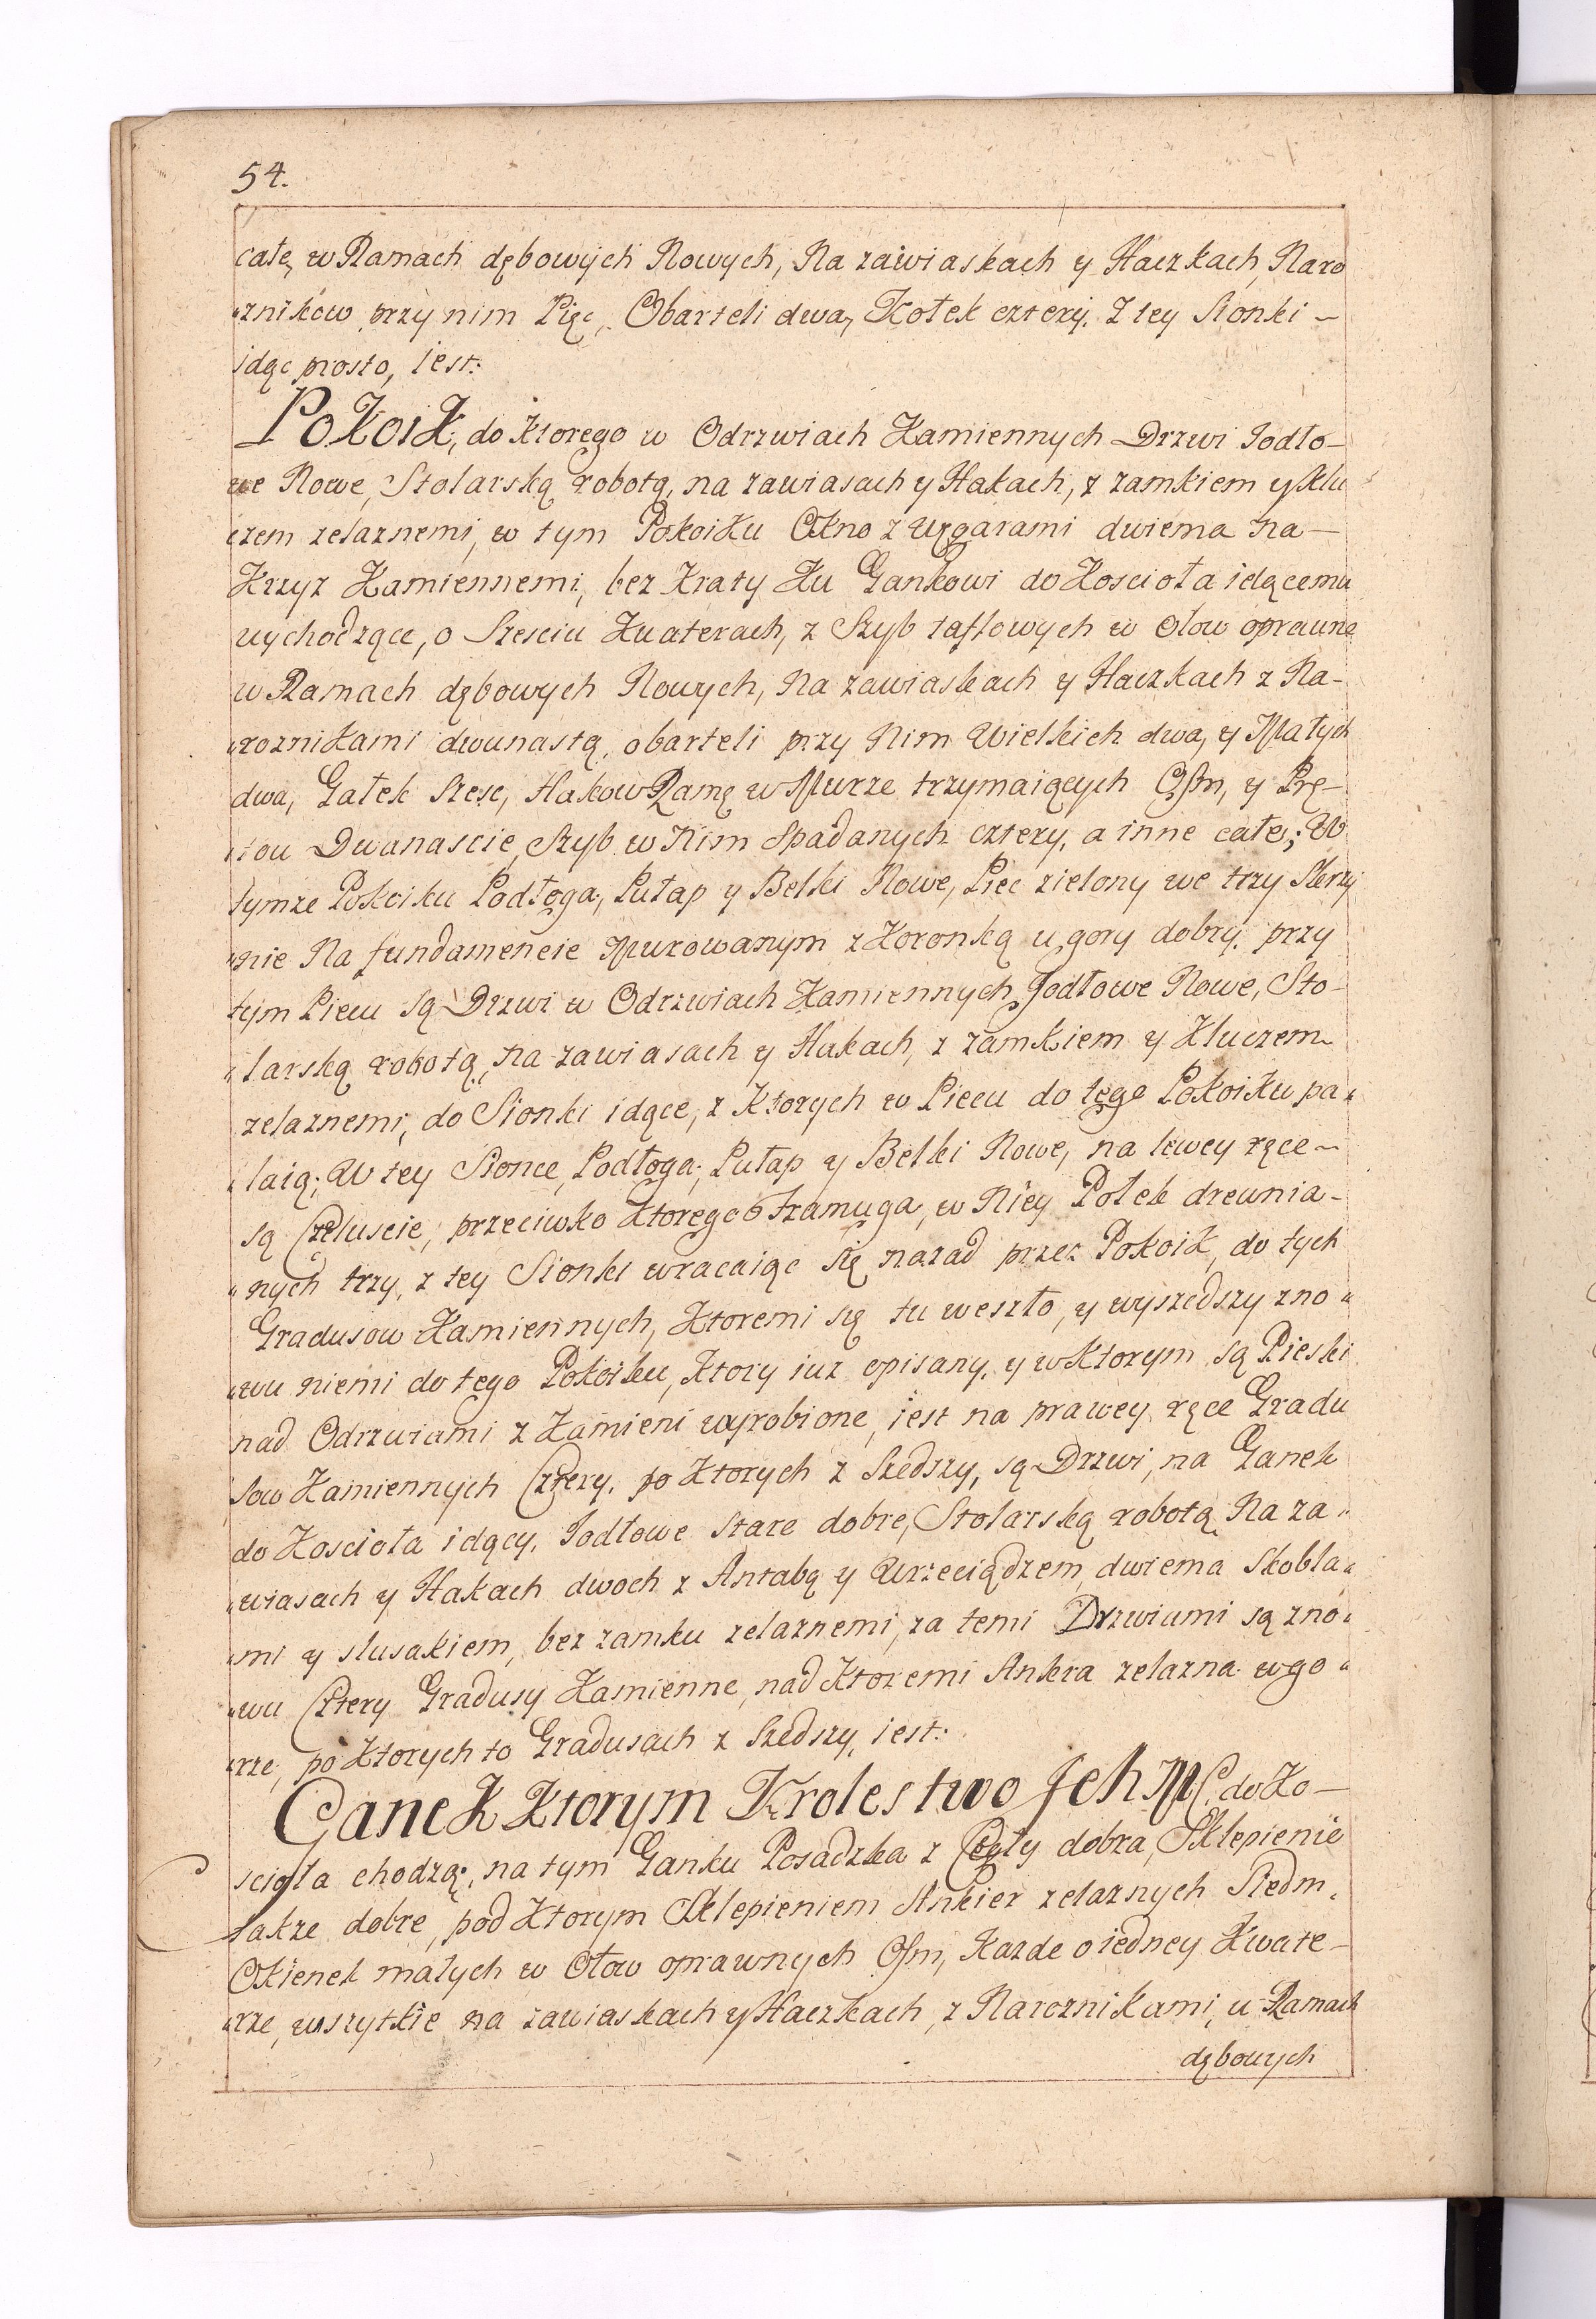 54.
całe, w Ramach dębowych Nowych, Na zawiaskach y Haczkach, Naro
„znikow przy nim Pięc, Obarteli dwa, Kołek cztery. Z tey Sionki –
idąc prosto, iest:
Pokoik, do ktorego w Odrzwiach Kamiennych Drzwi Jodło–
we Nowe, Stolarską robotą, na zawiasach y Hakach, z zamkiem y Klu
czem zelaznemi, w tym Pokoiku Okno z Węgarami dwiema na–
Krzyz Kamiennemi, bez Kraty Ku Gankowi do Koscioła idącemu
wychodzące, o Szesciu Kwaterach, z Szyb taflowych w Ołow oprawne
w Ramach dębowych Nowych, Na zawiaskach y Haczkach z Na–
„roznikami dwunastą, obarteli przy Nim Wielkich dwa, y Małych
dwa, Gałek Szesc, Hakow Ramę w Murze trzymaiących Osm, y Prę–
„tow Dwanascie, Szyb w Nim Spadanych cztery, a inne całe; W
tymze Pokoiku Podłoga, Pułap y Belki Nowe, Piec zielony we trzy Skrzy
„nie Na fundamencie Murowanym z Koronką u gory dobry. przy
tym Piecu są Drzwi w Odrzwiach Kamiennych Jodłowe Nowe, Sto–
„larską robotą, na zawiasach y Hakach, z zamkiem y Kluczem
zelaznemi, do Sionki idące, z Ktorych w Piecu do tego Pokoiku pa„
„laią; W tey Sionce, Podłoga, Pułap y Belki Nowe, na lewey ręce–
są Czeluscie, przeciwko Ktorego Framuga, w Niey Polek drewnia–
„nych trzy, z tey Sionki wracaiąc się nazad przez Pokoik, do tych
Gradusow Kamiennych, Ktoremi się tu weszło, y wyszedszy zno„
„wu niemi do tego Pokoiku, Ktory iuz opisany, y w Ktorym są Pieski
nad Odrzwiami z Kamieni wyrobione, iest na prawey ręce Gradu
sow Kamiennych Cztery, po Ktorych z Szedszy, są Drzwi, na Ganek
do Kosciola idący, Jodłowe stare dobre, Stolarską robotą, Na za„
„wiasach y Hakach dwoch z Antabą y Wrzeciądzem, dwiema Skobla„
„mi y slusakiem, bez zamku zelaznemi, za temi Drzwiami są zno„
„wu Cztery Gradusy Kamienne, nad Ktoremi Ankra zelazna w go„
„rze, po Ktorych to Gradusach z Szedszy, iest:
Ganek Ktorym Krolestwo Jch Mć. do Ko–
scioła chodzą; na tym Ganku Posadzka z Cegły dobra, Sklepienie
takze dobre, pod Ktorym Sklepieniem Ankier zelaznych Siedm,
Okienek małych w Ołow oprawnych Osm, Kazde o iedney Kwate–
„rze, wszytkie na zawiaskach y Haczkach, z Naroznikami, w Ramach
dębowych